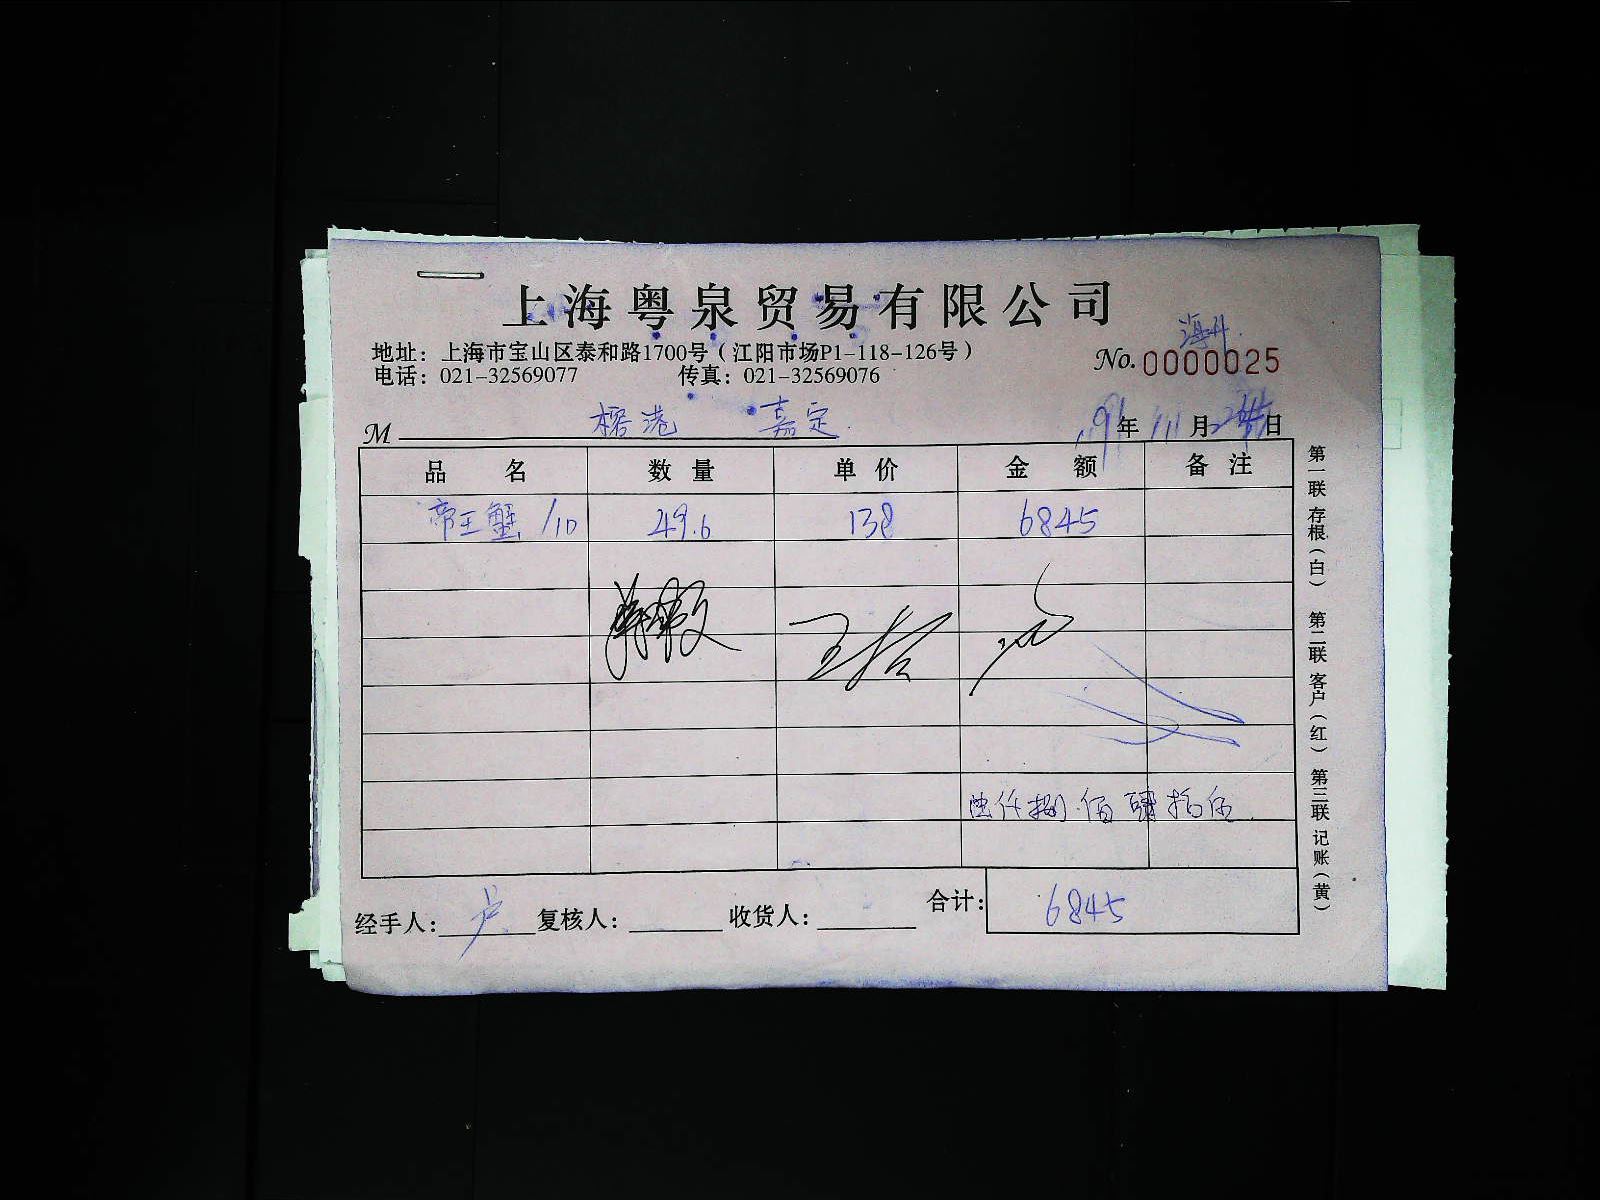 上海粤泉贸易有限公司
地址：上海市宝山区泰和路1700号（江阳市场P1-118-126号）
电话：021-32569077 传真：021-32569076
No. 0000025
M 榕港 嘉定 年 月 日
品名 数量 单价 金额 备注
帝王蟹 /10 49.6 138 6845
陆仟捌佰肆拾伍
合计： 6845
经手人：卢 复核人： 收货人：
第一联 存根（白） 第二联 客户（红） 第三联 记账（黄）